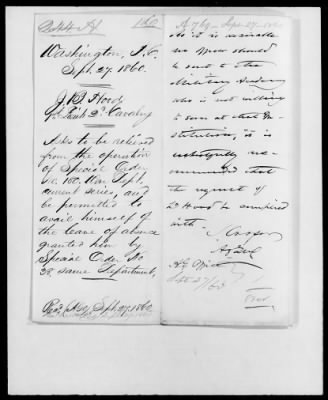 160
Washington, D.C.
Sept. 27. 1860.
J. B. Hood
1st Lieut 2d Cavalry
Asks to be relieved
from the operation
of Special Order
No. 100, War Dept.
current series, and
be permitted to
avail himself of
the leave of absence
granted him by
Special Order No
38, same Department.
Sept. 27. 1860.
Sept. 27.
As it is desirable
no officer should
be sent to the
Military Academy
who is not willing
to serve at that In-
stitution, it is
respectfully re-
commended that
the request of
Lt Hood be complied
with.
S. Cooper
A. G. Office
Sept 27/60